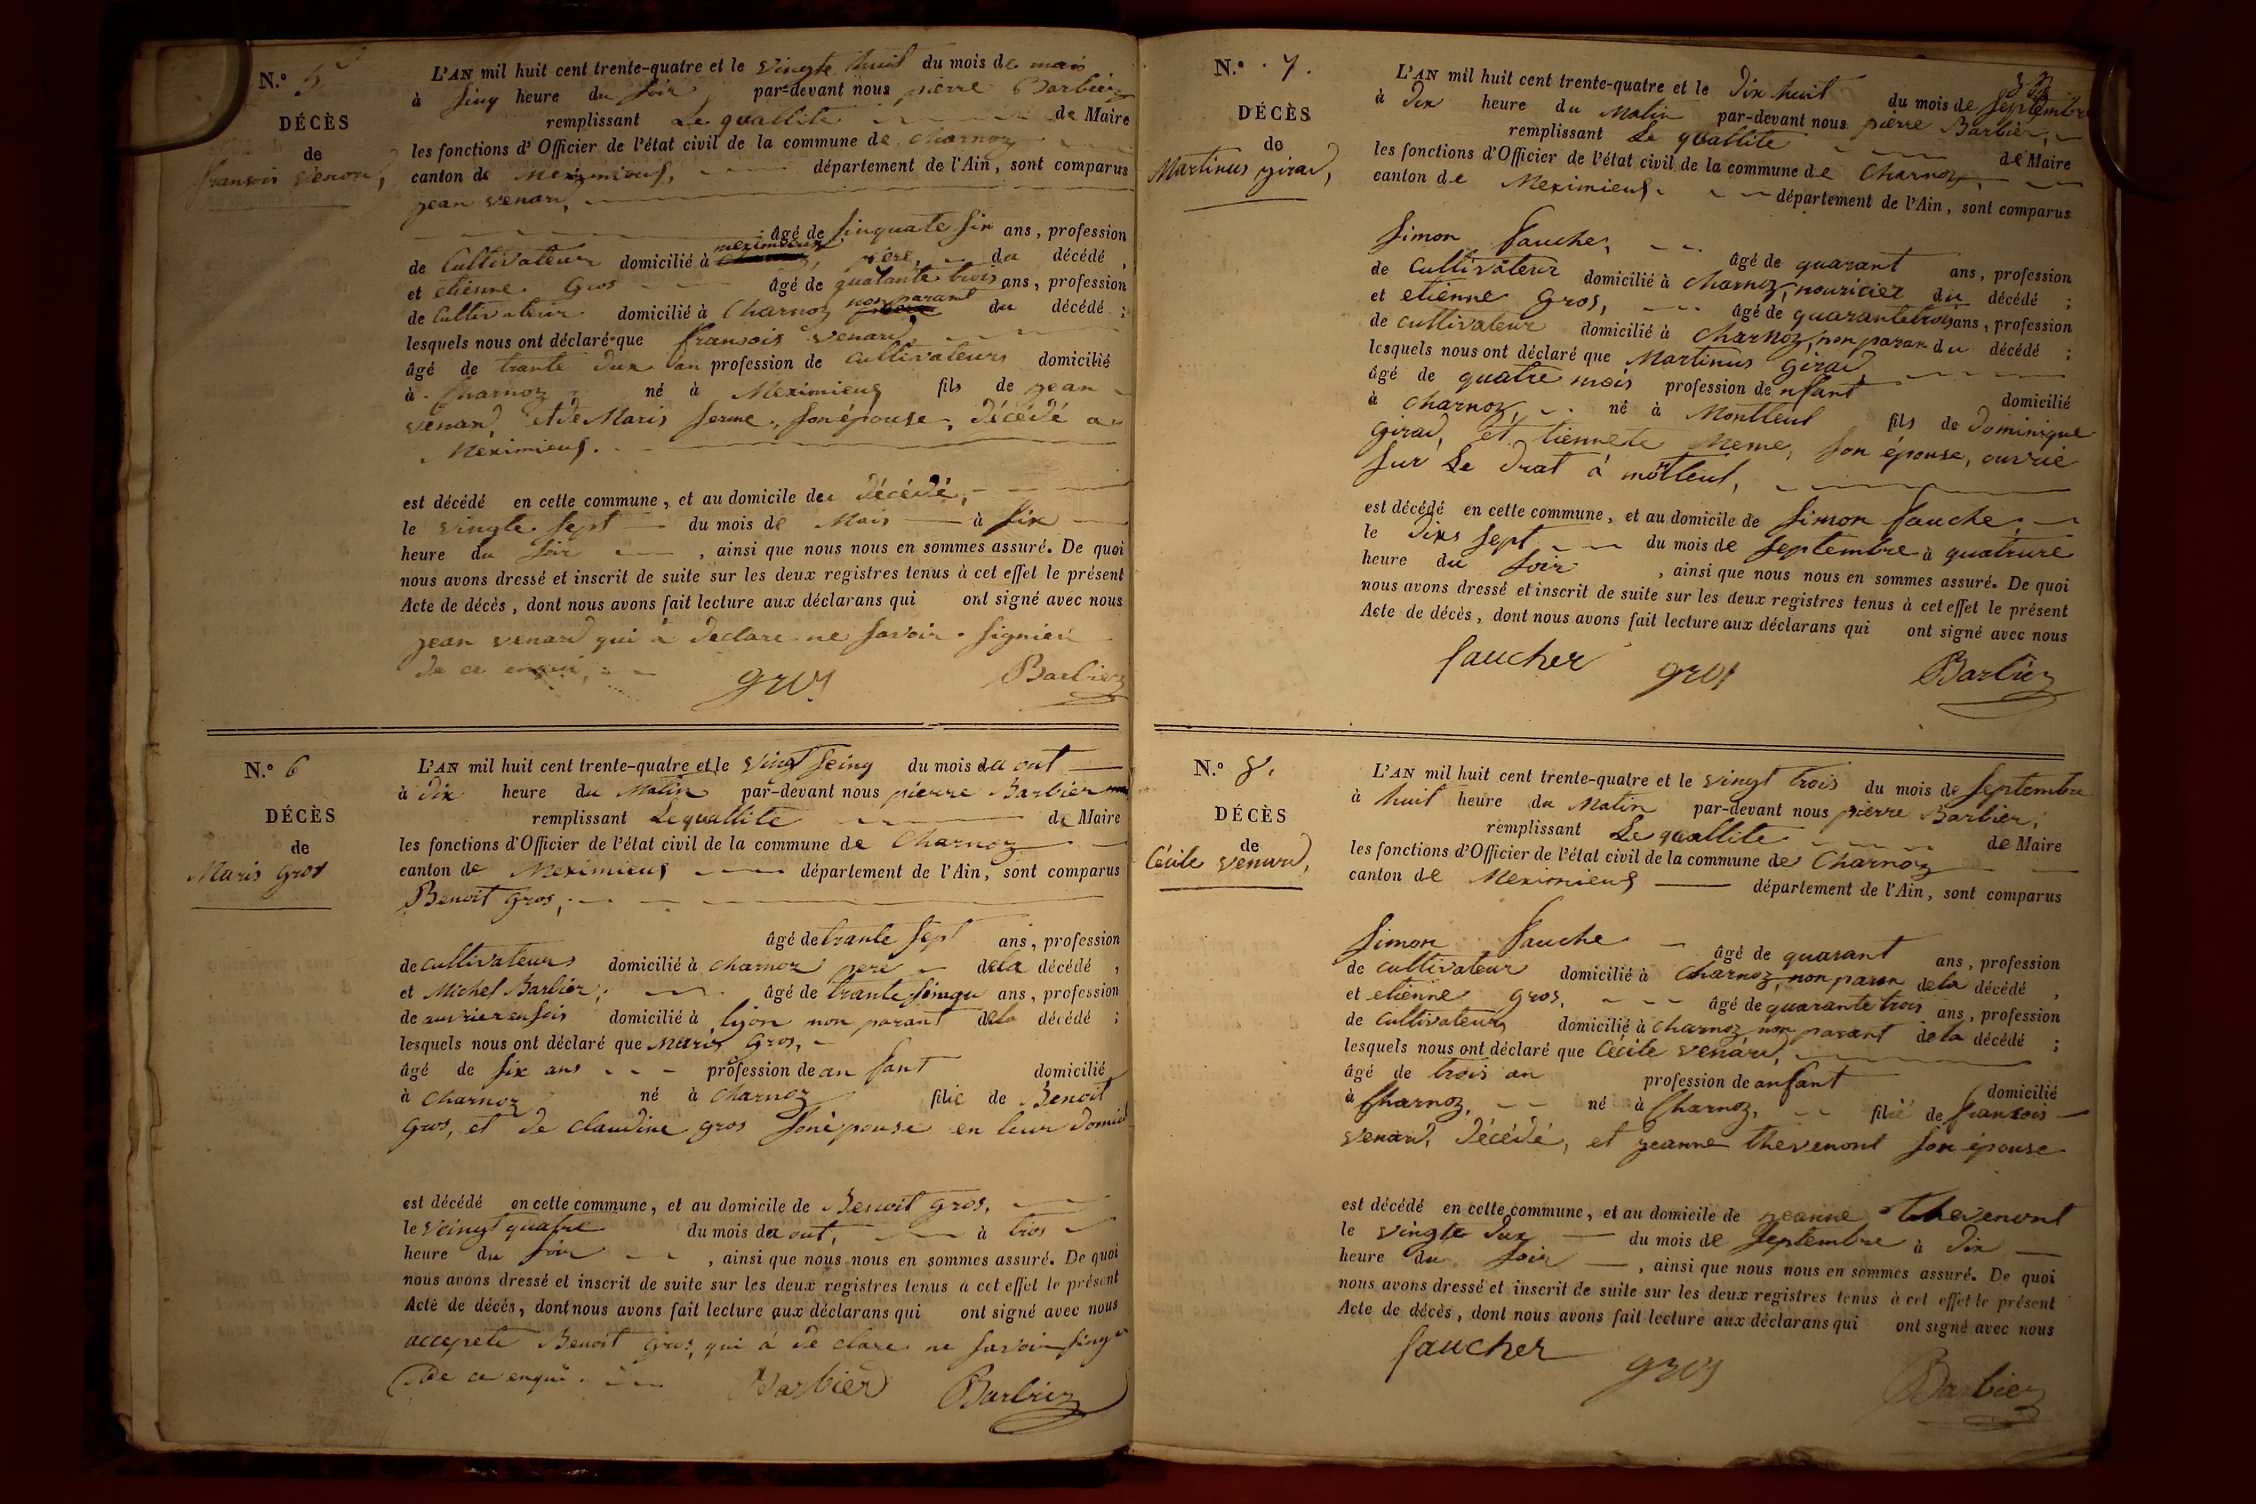 N.° 5
DÉCÈS
de
fransois venard,
L'AN mil huit cent trente-quatre et le vingte huit du mois de mais
à sinq heure du soir par-devant nous pierre Barbier
remplissant Le quallite de Maire
les fonctions d'Officier de l'état civil de la commune de charnoz
canton de Meximieux, département de l'Ain, sont comparus
jean venard,
âgé de sinquate six ans, profession
de Cultivateur domicilié à meximieux père du décédé,
et etienne Gros âgé de quatante trois ans, profession
de Cultivateur domicilié à Charnoz non parant du décédé;
lesquels nous ont déclaré que fransois venard,
âgé de trante dux an profession de cultivateurs domicilié
à Charnoz, né à Meximieux fils de jean
venard et de Maris ferme, son épouse, décédé a
Meximieux.
est décédé en cette commune, et au domicile deu décédé,
le vingte sept du mois de Mais à six
heure du soir, ainsi que nous nous en sommes assuré. De quoi
nous avons dressé et inscrit de suite sur les deux registres tenus à cet effet le présent
Acte de décès, dont nous avons fait lecture aux déclarans qui ont signé avec nous
jean venard qui à declare ne savoir signier
de ce enqui,
gros Barbier
N.° 6
DÉCÈS
de
Maris gros
L'AN mil huit cent trente-quatre et le vingt seinq du mois da out
à dix heure du Matin par-devant nous pierre Barbier
remplissant Le quallite de Maire
les fonctions d'Officier de l'état civil de la commune de Charnoz
canton de Meximieux département de l'Ain, sont comparus
Benoit gros,
âgé de trante sept ans, profession
de cultivateurs domicilié à charnoz pere dela décédé,
et Michel Barbier, âgé de trante seinque ans, profession
de auvrier en sois domicilié à lyon non parant dela décédé;
lesquels nous ont déclaré que Maris Gros,
âgé de six ans profession de an fant domicilié
à charnoz né à charnoz filie de Benoit
gros, et de claudine gros son épouse en leur domicil
est décédé en cette commune, et au domicile de Benoit gros,
le veingt quatre du mois da out, à trois
heure du soir, ainsi que nous nous en sommes assuré. De quoi
nous avons dressé et inscrit de suite sur les deux registres tenus à cet effet le présent
Acte de décès, dont nous avons fait lecture aux déclarans qui ont signé avec nous
accepete Benoit gros, qui à de clare ne savoir sing
De ce enqui. Barbier Barbier
N.° 7.
DÉCÈS
de
Martinus girad,
L'AN mil huit cent trente-quatre et le Dix huit du mois de septembre
à dix heure du Matin par-devant nous pierre Barbier,
remplissant Le quallite de Maire
les fonctions d'Officier de l'état civil de la commune de Charnoz,
canton de Meximieux département de l'Ain, sont comparus
simon fauche, âgé de quarant ans, profession
de cultivateur domicilié à charnoz, nouricier du décédé;
et etienne gros, âgé de quarante trois ans, profession
de cultivateur domicilié à charnoz, non paran du décédé;
lesquels nous ont déclaré que Martinus girad,
âgé de quatre mois profession de nfant domicilié
à charnoz, né à Montleul fils de dominique
girad, et tiennete Meme, son épouse, ouvrié
sur Le drat à motleul,
est décédé en cette commune, et au domicile de simon fauche,
le dixs sept du mois de septembre à quatrure
heure du soir, ainsi que nous nous en sommes assuré. De quoi
nous avons dressé et inscrit de suite sur les deux registres tenus à cet effet le présent
Acte de décès, dont nous avons fait lecture aux déclarans qui ont signé avec nous
faucher gros Barbier
N.° 8.
DÉCÈS
de
Cécile venard,
L'AN mil huit cent trente-quatre et le vingt trois du mois de septembre
à huit heure du Matin par-devant nous pierre Barbier,
remplissant Le quallite de Maire
les fonctions d'Officier de l'état civil de la commune de Charnoz
canton de Meximieux département de l'Ain, sont comparus
simon fauche âgé de quarant ans, profession
de cultivateur domicilié à Charnoz, non paran dela décédé,
et etienne gros, âgé de quarante trois ans, profession
de cultivateur domicilié à charnoz non parant dela décédé;
lesquels nous ont déclaré que Cécile venard,
âgé de trois an profession de anfant domicilié
à Charnoz, né à Charnoz, filié de francois
venard, décédé, et jeanne thevenont son épouse
est décédé en cette commune, et au domicile de jeanne thevenont
le vingte dux du mois de septembre à dix
heure du soir, ainsi que nous nous en sommes assuré. De quoi
nous avons dressé et inscrit de suite sur les deux registres tenus à cet effet le présent
Acte de décès, dont nous avons fait lecture aux déclarans qui ont signé avec nous
faucher gros Barbier